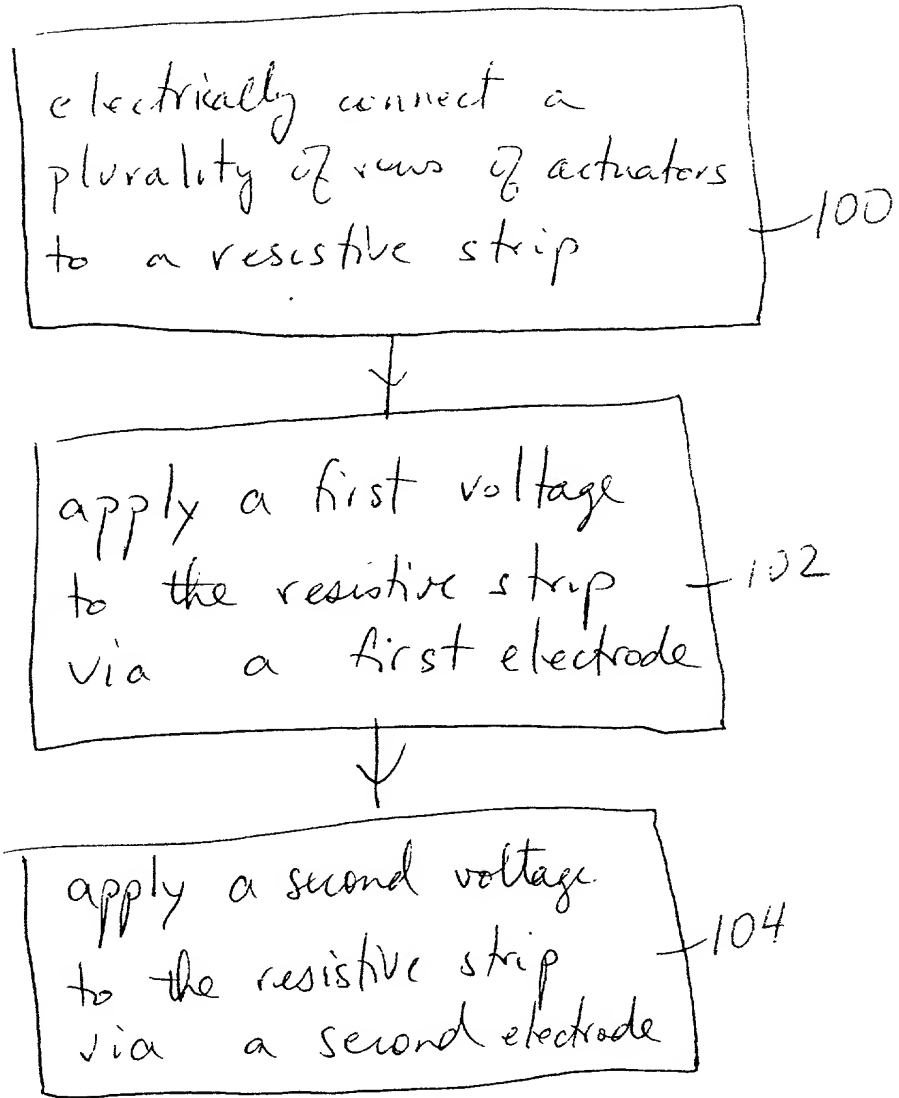 electrically connect a
plurality of rows of actuators
to a resistive strip
100
apply a first voltage
to the resistive strip
via a first electrode
102
apply a second voltage
to the resistive strip
via a second electrode
104